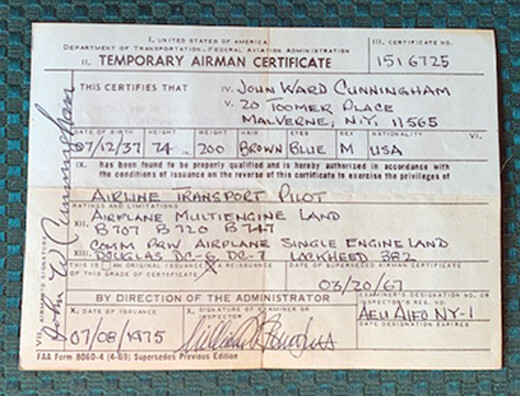 I. UNITED STATES OF AMERICA
DEPARTMENT OF TRANSPORTATION-FEDERAL AVIATION ADMINISTRATION
II. TEMPORARY AIRMAN CERTIFICATE
III. CERTIFICATE NO.
1516725
THIS CERTIFIES THAT
IV. JOHN WARD CUNNINGHAM
V. 20 TOOMER PLACE
MALVERNE, N.Y. 11565
DATE OF BIRTH HEIGHT WEIGHT HAIR EYES SEX NATIONALITY VI.
07/12/37 74 IN. 200 BROWN BLUE M USA
IX. has been found to be properly qualified and is hereby authorized in accordance with
the conditions of issuance on the reverse of this certificate to exercise the privileges of
AIRLINE TRANSPORT PILOT
RATINGS AND LIMITATIONS
XII. AIRPLANE MULTIENGINE LAND
B707 B720 B747
COMM PRIV AIRPLANE SINGLE ENGINE LAND
XIII. DOUGLAS DC-6 DC-7 LOCKHEED 382
THIS IS AN ORIGINAL ISSUANCE X A REISSUANCE
OF THIS GRADE OF CERTIFICATE
DATE OF SUPERSEDED AIRMAN CERTIFICATE
03/20/67
BY DIRECTION OF THE ADMINISTRATOR
EXAMINER'S DESIGNATION NO. OR
INSPECTOR'S REG. NO.
NY-1
X. DATE OF ISSUANCE
07/08/1975
X. SIGNATURE OF EXAMINER OR
INSPECTOR
DATE DESIGNATION EXPIRES
FAA Form 8060-4 (4-69) Supersedes Previous Edition
VII. AIRMAN'S SIGNATURE
John W Cunningham